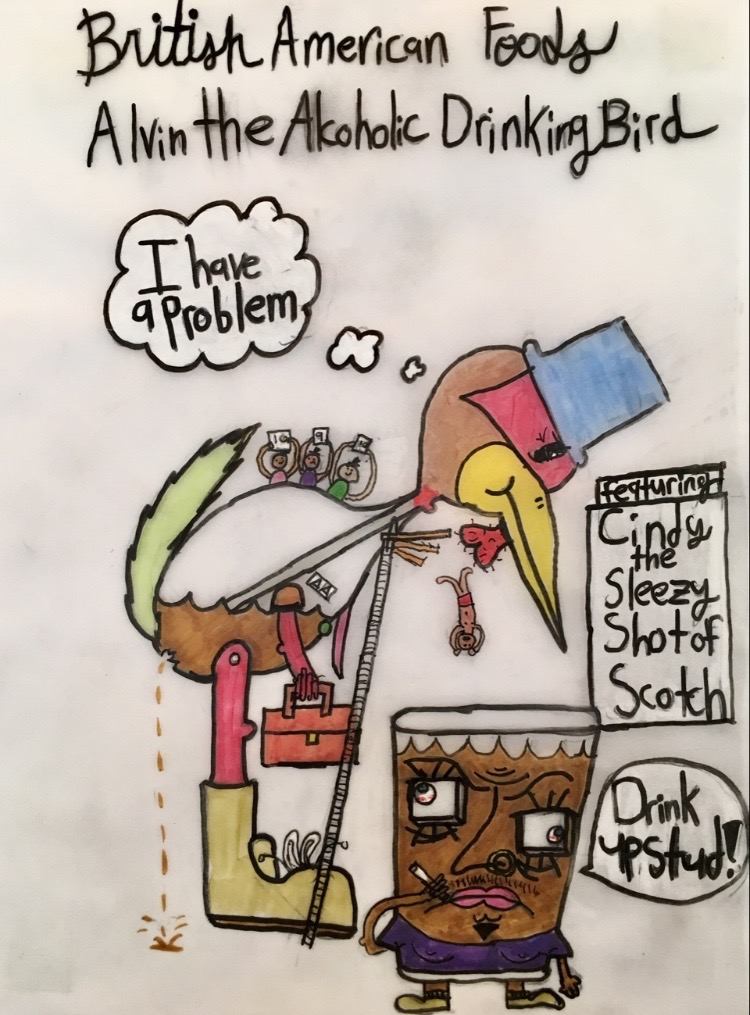 British American Foods
Alvin the Alcoholic Drinking Bird
I have
a problem
10 9
featuring
Cindy
the
Sleezy
Shot of
Scotch
AA
Drink
up stud!